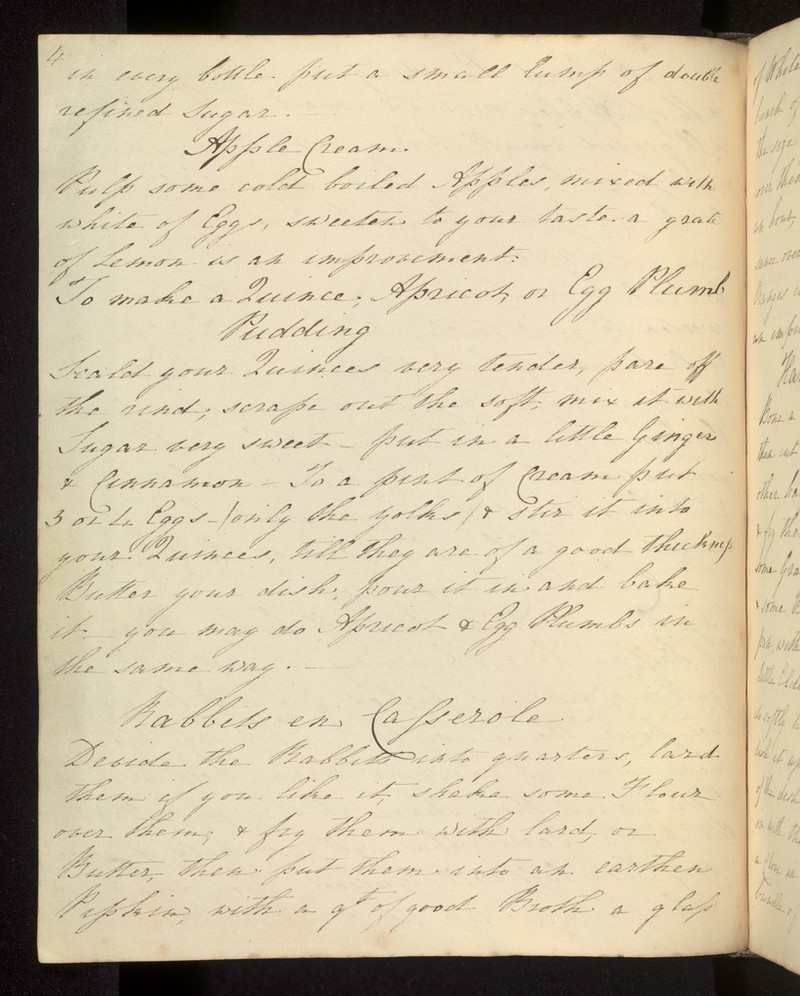 4
in every bottle put a small lump of double
refined Sugar. —
Apple Cream.
Pulp some cold boiled Apples, mixed with
white of Eggs, sweeten to your taste. a grate
of Lemon is an improvement.
To make a Quince, Apricot, or Egg Plumb
Pudding
Scald your Quinces very tender, pare off
the rind, scrape out the soft, mix it with
Sugar very sweet – put in a little Ginger
& Cinnamon – To a pint of Cream put
3 or 4 Eggs – (only the yolks) & stir it into
your Quinces, till they are of a good thickness
Butter your dish, pour it in and bake
it – you may do Apricot & Egg Plumbs in
the same way. —
Rabbits en Casserole
Devide the Rabbits into quarters, lard
them if you like it, shake some Flour
over them, & fry them with lard, or
Butter, then put them into an earthen
Pipkin, with a qt of good Broth a glass
of White
bunch of
the size
over them
an hour,
sauce over
Oranges
an impro
Bone a
then cut
other
& fry the
some Gra
& some
with
little
softly
of the dish